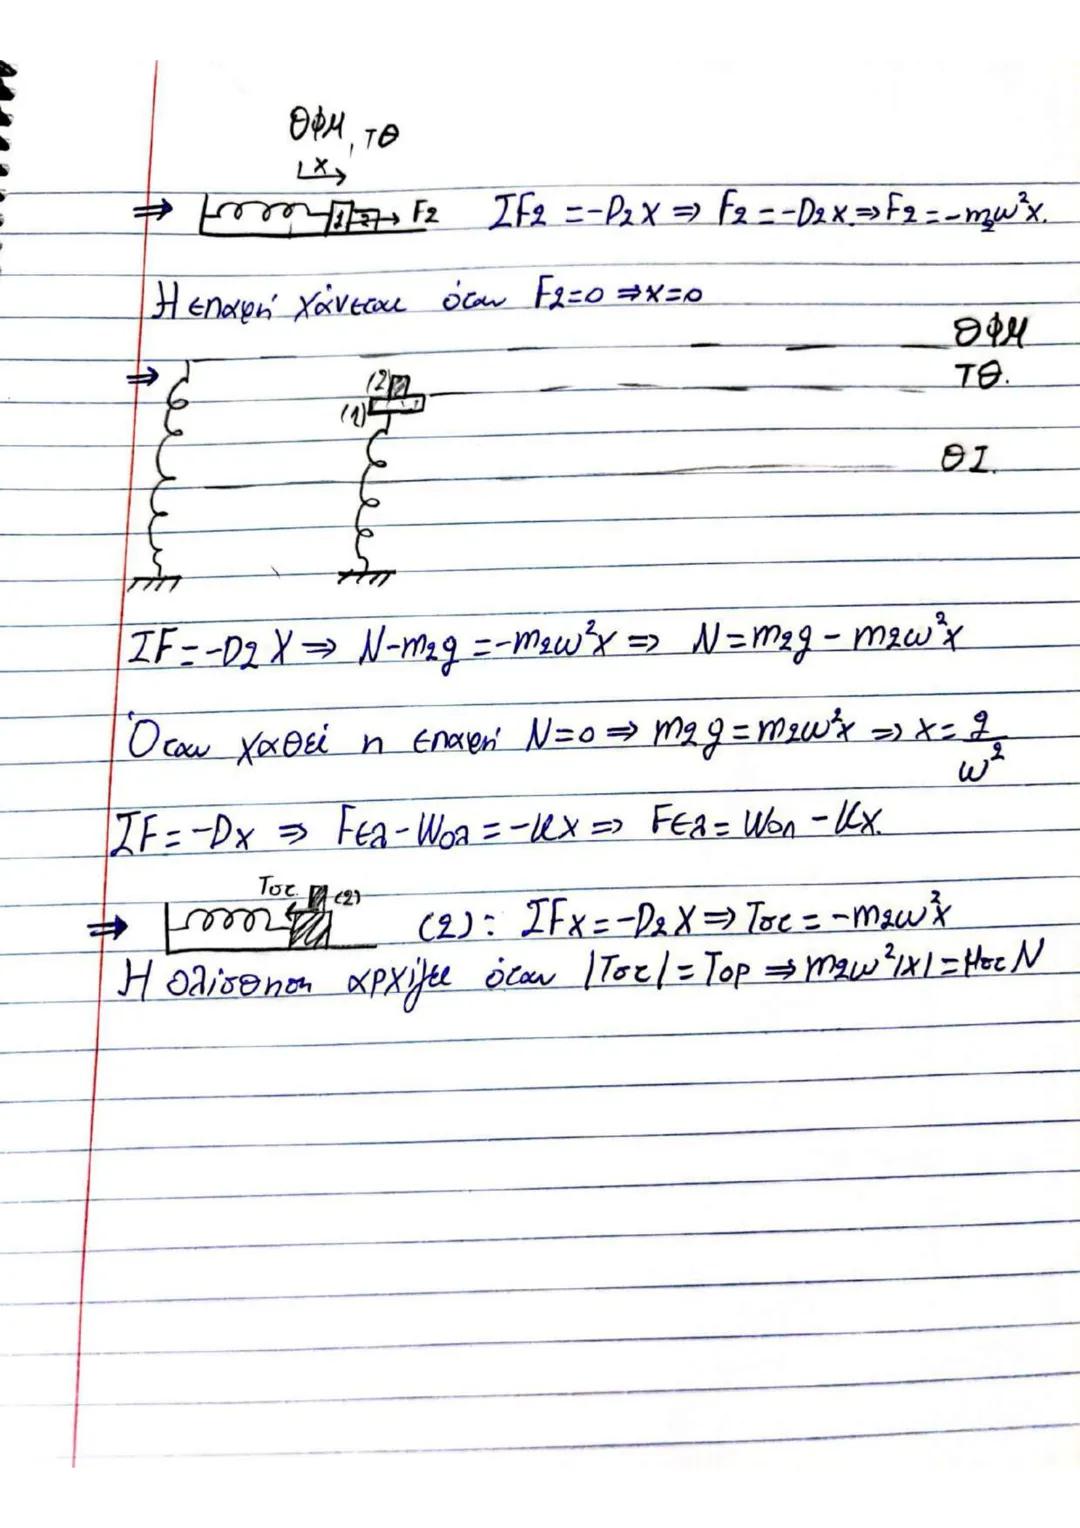 ΘΦΜ, ΤΘ
x
⇒ 1 2 F2 ΣF2 = -D2 x ⇒ F2 = -D2 x ⇒ F2 = -m2ω²x.
Η επαφή χάνεται όταν F2=0 ⇒ x=0
ΘΦΜ
⇒ (2) ΤΘ.
(1)
ΘΙ.
ΣF = -D2 x ⇒ N-m2g = -m2ω²x ⇒ N = m2g - m2ω²x
Όταν χαθεί η επαφή N=0 ⇒ m2g = m2ω²x ⇒ x = g/ω²
ΣF = -Dx ⇒ Fελ - Wολ = -kx ⇒ Fελ = Wολ - kx.
Τστ (2)
⇒ (2): ΣFx = -D2 x ⇒ Τστ = -m2ω²x
Η ολίσθηση αρχίζει όταν |Τστ| = Τορ ⇒ m2ω²|x| = μστ N